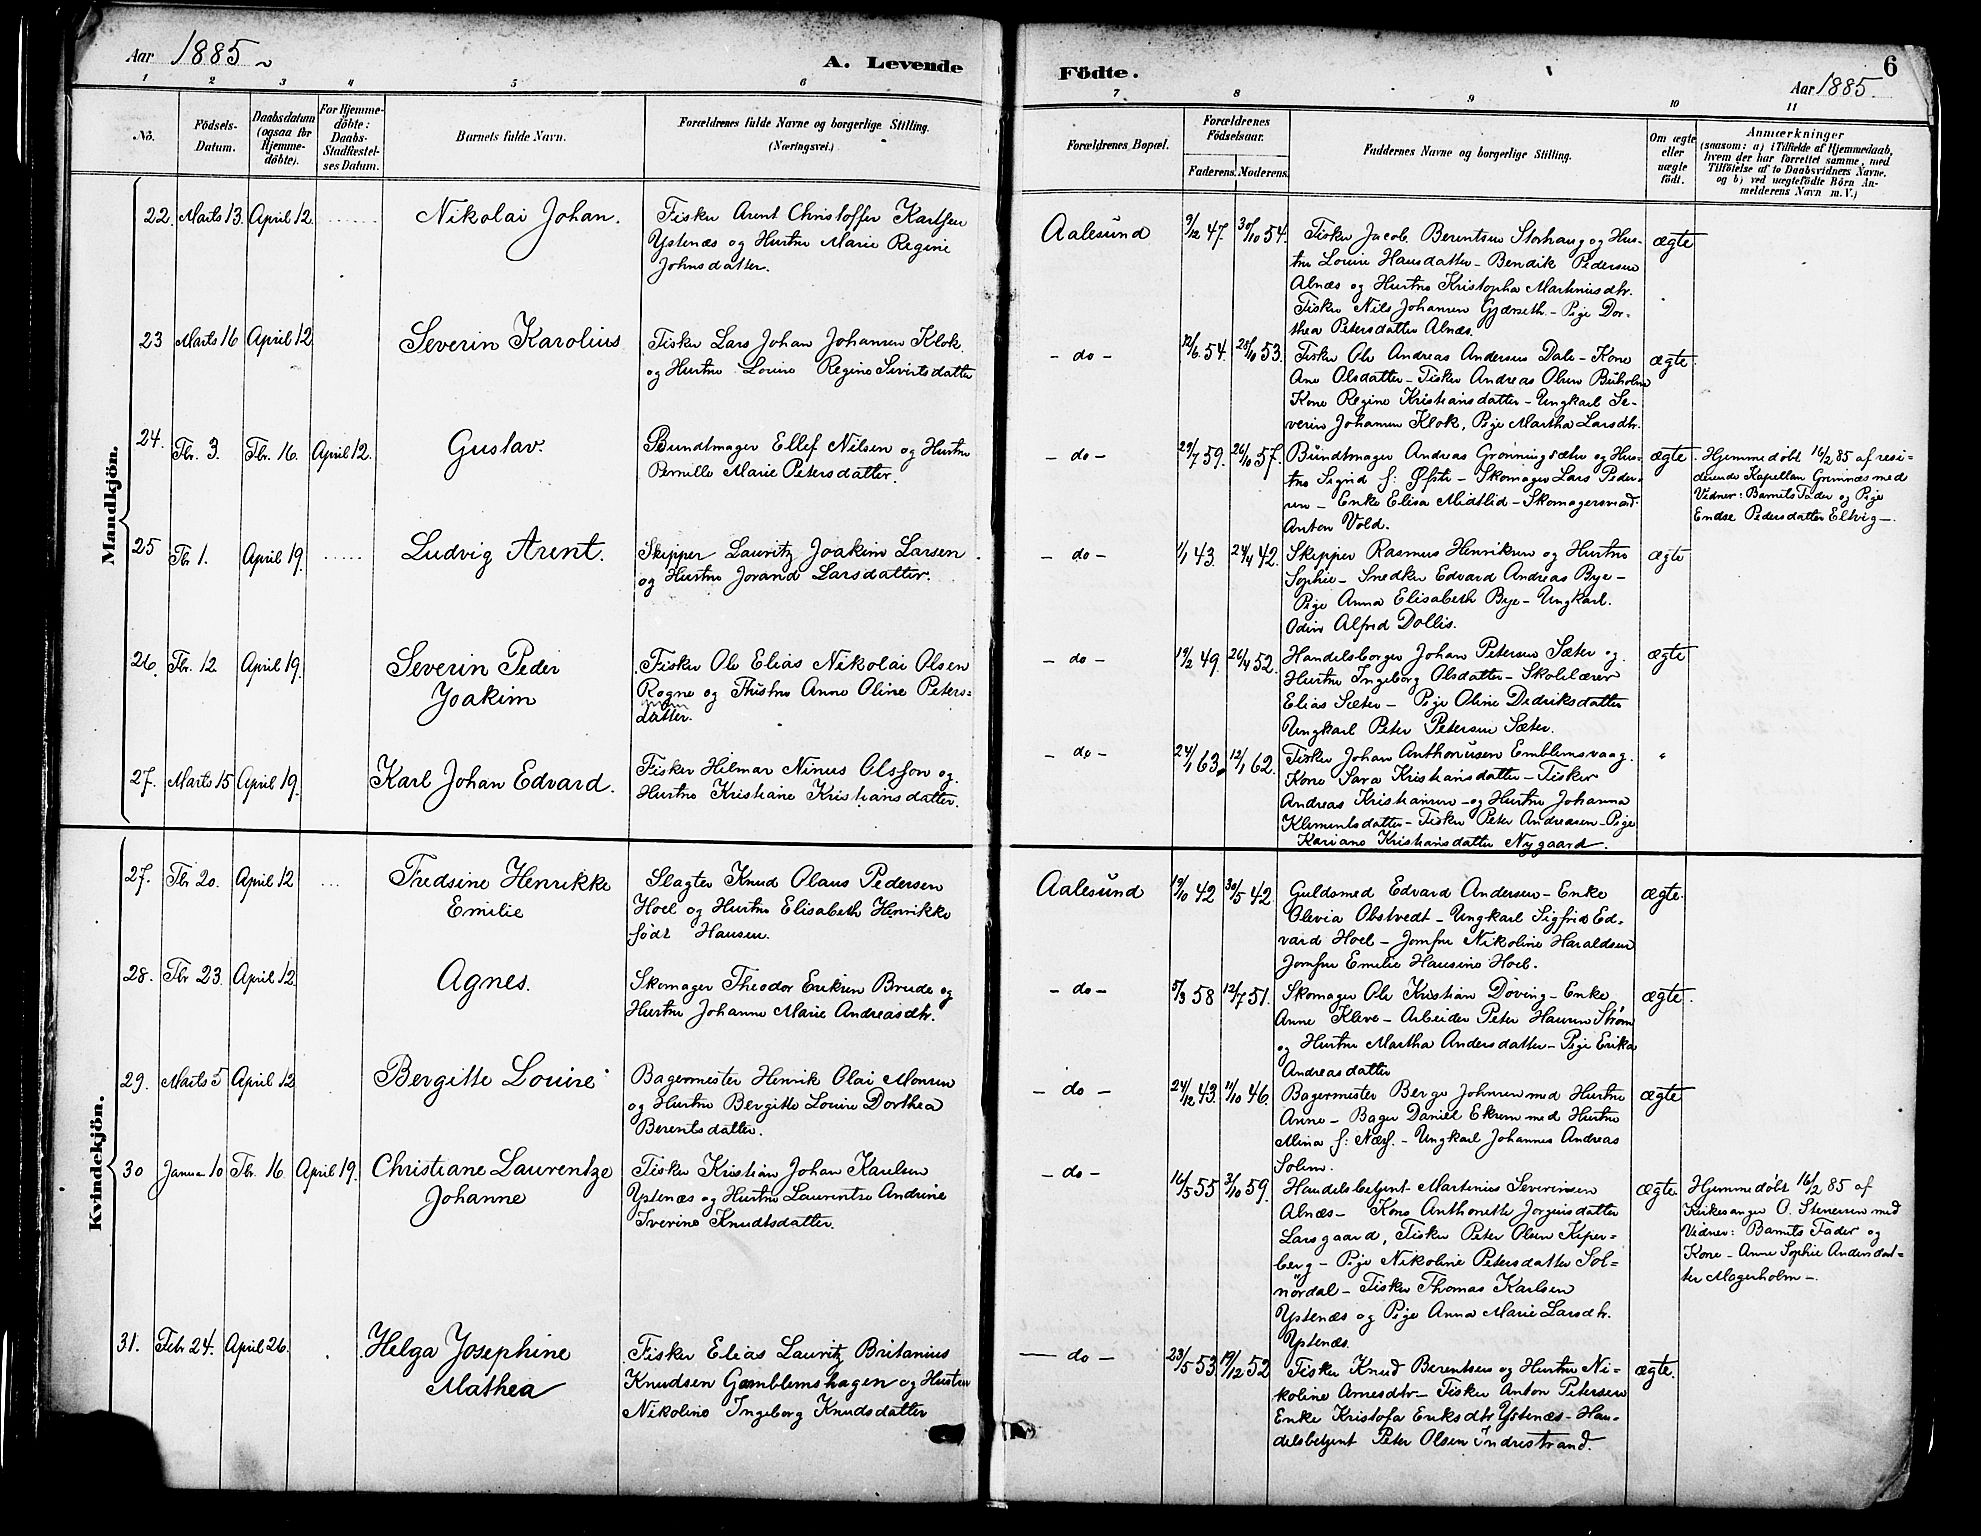 Aar 1885
A. Levende
1 2 3 4 5 6
No.
Födsels-
Datum.
Daabsdatum
(ogsaa for
Hjemme-
döbte).
For Hjemme-
döbte:
Daabs-
Stadfæstel-
ses Datum.
Barnets fulde Navn.
Forældrenes fulde Navne og borgerlige Stilling.
(Næringsvei.)
Mandkjön.
22. Marts 13. April 12. Nikolai Johan.
Fisker Arent Christoffer Karlsen
Ystenæs og Hustru Marie Regine
Johnsdatter.
23 Marts 16 April 12 Severin Karolius
Fisker Lars Johan Johansen Klok
og Hustru Louise Regine Sivertsdatter
24. Fbr. 3. Fbr. 16. April 12. Gustav.
Bundtmager Ellef Nilsen og Hustru
Pernille Marie Petersdatter.
25 Fbr 1. April 19. Ludvig Arent.
Skipper Lauritz Joakim Larsen
og Hustru Jorand Larsdatter.
26. Fbr. 12 April 19. Severin Peder
Joakim
Fisker Ole Elias Nikolai Olsen
Rogne og Hustru Anne Oline Peters-
datter.
27. Marts 15 April 19. Karl Johan Edvard.
Fisker Hilmar Ninus Olsson og
Hustru Kristiane Kristiansdatter.
Kvindekjön.
27. Fbr 20. April 12 Fredsine Henrikke
Emilie
Slagter Knud Olaus Pedersen
Hoel og Hustru Elisabeth Henrikke
født Hansen.
28. Fbr 23. April 12. Agnes.
Skomager Theodor Eriksen Brude og
Hustru Johanne Marie Andreasdtr.
29. Marts 5 April 12 Bergitte Louise
Bagermester Henrik Olai Monsen
og Hustru Bergitte Louise Dorthea
Berentsdatter.
30 Januar 10 Fbr. 16 April 19. Christiane Laurentze
Johanne
Fisker Kristian Johan Karlsen
Ystenæs og Hustru Laurentse Andrine
Iverine Knudtsdatter.
31. Febr 24. April 26. Helga Josephine
Mathea
Fisker Elias Lauritz Britanius
Knudsen Gamblemshagen og Hustru
Nikoline Ingeborg Knudsdatter
Födte.
6
Aar 1885.
7 8 9 10 11
Forældrenes Bopæl.
Forældrenes
Födselsaar.
Faderens. Moderens.
Faddernes Navne og borgerlige Stilling.
Om ægte
eller
uægte
födt.
Anmærkninger
(saasom: a) i Tilfælde af Hjemmedaab,
hvem der har forrettet samme, med
Tilföielse af to Daabsvidners Navne.
og b) ved uægtefödte Börn An-
melderens Navn m. V.)
Aalesund 9/12 47. 30/10 54.
Fisker Jacob Berentsen Storhaug og Hus-
tru Louise Hansdatter - Bendik Pedersen
Alnæs og Hustru Kristopha Martinusdtr.
Fisker Nils Johansen Gjærseth - Pige Dor-
thea Petersdatter Alnæs.
ægte
- do - 12/6 54. 25/10 53.
Fisker Ole Andreas Andersen Dale - Kone
Ane Olsdatter - Fisker Andreas Olsen Buholm
Kone Regine Kristiansdatter - Ungkarl Se-
verin Johansen Klok, Pige Martha Larsdtr.
ægte
- do - 29/7 59. 26/10 57.
Bundtmager Andreas Grønningsæter og Hus-
tru Sigrid f: Øfsti - Skomager Lars Peder-
sen - Enke Elisa Midtlid - Skomagersvend
Anton Vold.
ægte
Hjemmedøbt 16/2 85 af resi-
derende Kapellan Grimnæs med
Vidner: Barnets Fader og Pige
Endse Pedersdatter Eltvig -.
- do - 1/1 43. 24/4 42.
Skipper Rasmus Henriksen og Hustru
Sophie - Snedker Edvard Andreas Bye -
Pige Anna Elisabeth Bye - Ungkarl
Odin Alfred Dollis.
ægte
- do - 19/2 49. 26/4 52.
Handelsborger Johan Petersen Sæter og
Hustru Ingeborg Olsdatter - Skolelærer
Elias Sæter - Pige Oline Dedriksdatter
Ungkarl Peter Petersen Sæter.
ægte
- do - 24/1 63. 12/1 62.
Fisker Johan Anthonisen Emblemsvaag.
Kone Sara Kristiansdatter - Fisker
Andreas Kristiansen - og Hustru Johanna
Klementsdatter - Fisker Peter Andreasen - Pige
Kariane Kristiansdatter Nygaard.
"
Aalesund 19/10 42 30/5 42
Guldsmed Edvard Andersen - Enke
Olevia Obstvedt - Ungkarl Sigfrid Ed-
vard Hoel - Jomfru Nikoline Haraldsen
Jomfru Emelie Hansine Hoel.
ægte.
- do - 5/3 58 12/7 51.
Skomager Ole Kristian Døving - Enke
Anne Kleve - Arbeider Peter Hansen Strøm
og Hustru Martha Andersdatter - Pige Erika
Andreasdatter
ægte
- do - 24/12 43. 11/10 46.
Bagermester Berge Johnsen med Hustru
Anne - Bager Daniel Ekrem med Hustru
Mina f: Næss. - Ungkarl Johannes Andreas
Solem.
ægte
- do - 16/5 55 3/10 59.
Handelsbetjent Martinius Severinsen
Alnæs - Kone Anthonette Jørginsdatter
Larsgaard, Fisker Peter Olsen Kiper-
berg - Pige Nikoline Petersdatter Sol-
nördal - Fisker Thomas Karlsen
Ystenæs og Pige Anna Marie Larsdtr.
Ystenæs.
ægte
Hjemmedøbt 16/2 85 af
Kirkesanger O. Stenersen med
Vidner: Barnets Fader og
Kone - Anne Sophie Andersdat-
ter Magerholm -.
- do - 23/5 53 19/12 52
Fisker Knud Berentsen og Hustru Ni-
koline Arnesdtr - Fisker Anton Petersen
Enke Kristofa Eriksdtr Ystenæs - Han-
delsbetjent Peter Olsen Indrestrand.
ægte.